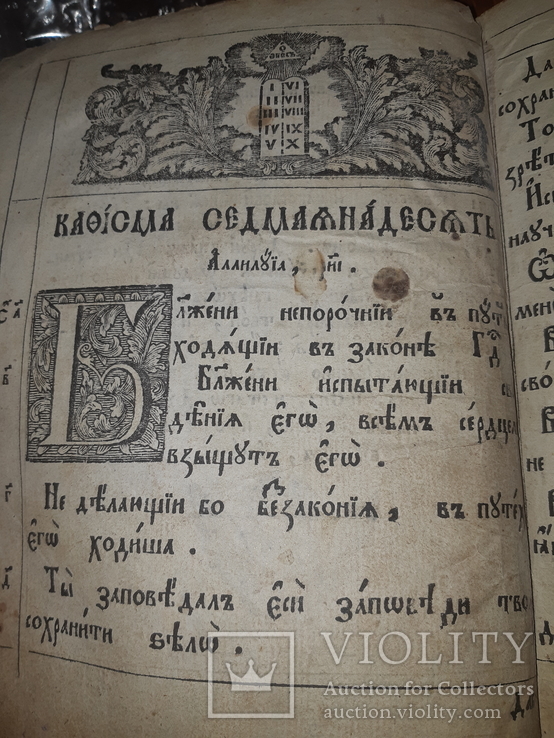 I VI
II VII
III VIII
IV IX
V X
КАѲІ́СМА СЕДМАѦНА́ДЕСѦТЬ
А҆ллилꙋ́їа, р҃н҃і.
Бл҃же́ни непоро́чнїи въ пꙋт
ходѧ́щїи въ зако́нѣ Гд
Бл҃же́ни и҆спыта́ющїи
дѣ́нїѧ є҆гѡ̀, всѣ́мъ се́рдцем
взы́щꙋтъ є҆гѡ̀.
Не дѣ́лающїи бо беззако́нїѧ, въ пꙋте́х
є҆гѡ̀ ходи́ша.
Ты̀ заповѣ́далъ є҆сѝ за́пѡвѣди тво
сохрани́ти ѕѣлѡ̀.
Да
сохран
То
зрѣт
Йсп
наꙋч
Ѿ
мен
сво
не
VIOLITY
Auction for Collectors
auction.violity.com